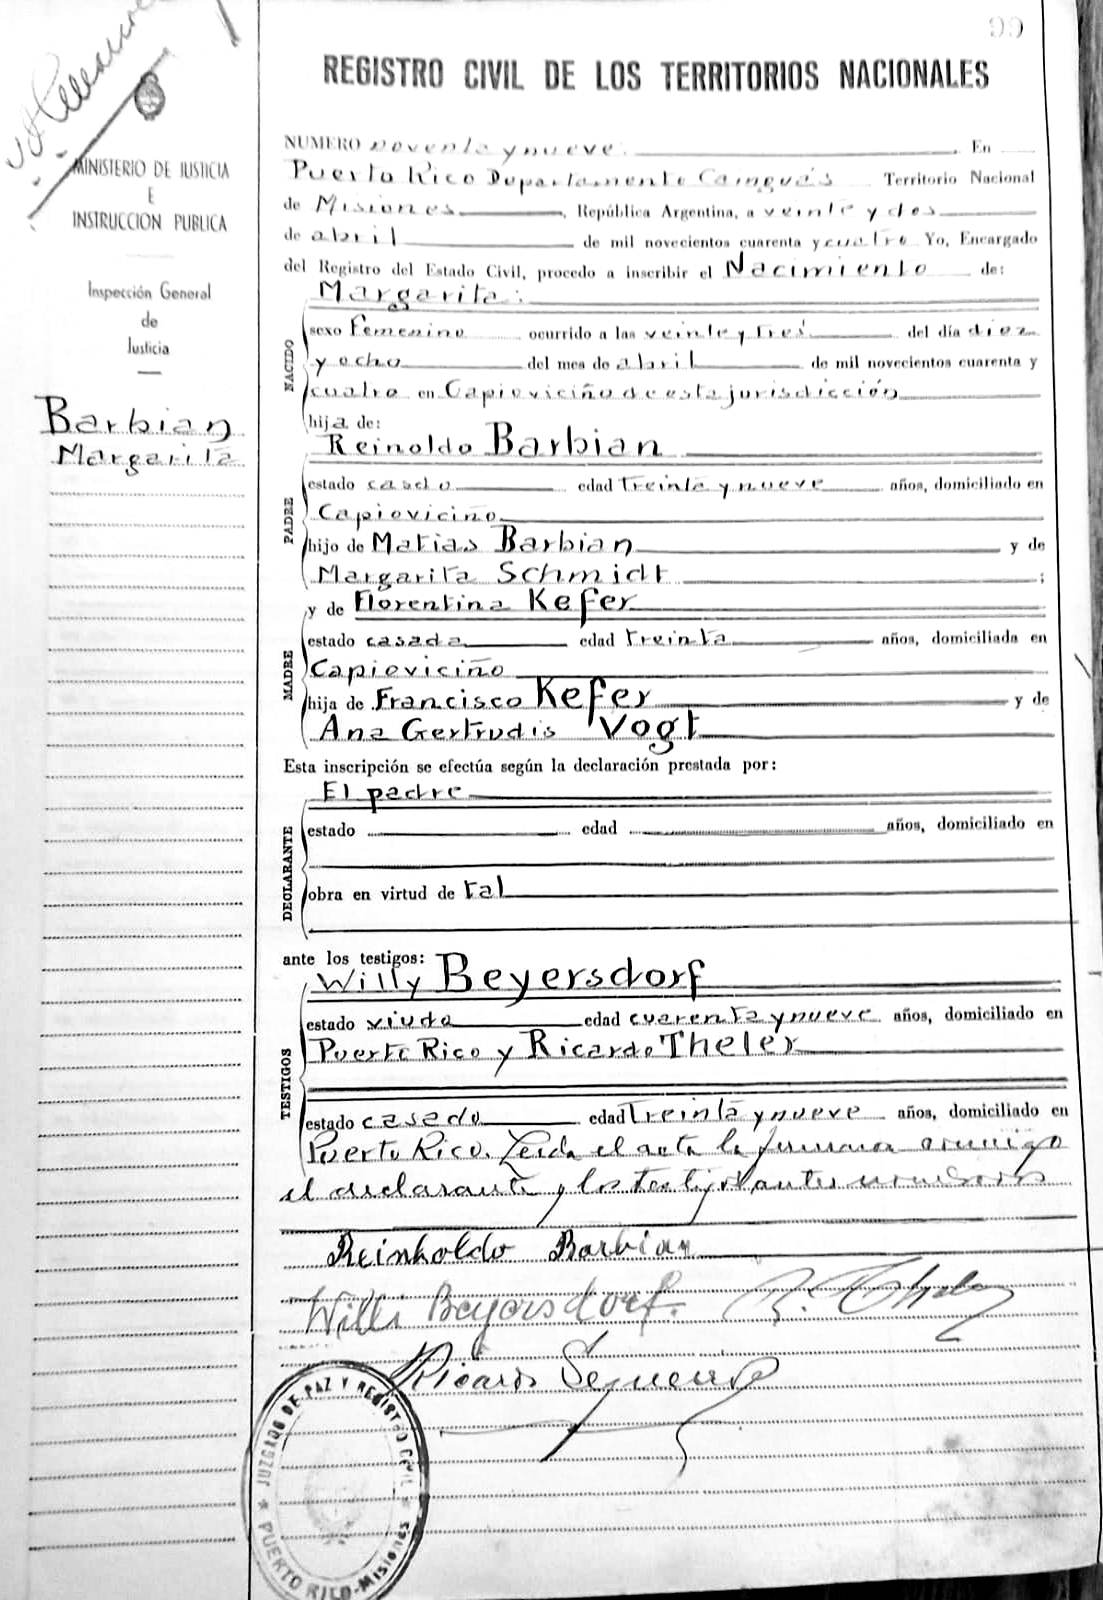 99
REGISTRO CIVIL DE LOS TERRITORIOS NACIONALES
MINISTERIO DE JUSTICIA
E
INSTRUCCION PUBLICA
Inspección General
de
Justicia
Barbian
Margarita
NUMERO noventa y nueve. En
Puerto Rico Departamento Cainguás Territorio Nacional
de Misiones, República Argentina, a veinte y dos
de abril de mil novecientos cuarenta y cuatro Yo, Encargado
del Registro del Estado Civil, procedo a inscribir el Nacimiento de:
Margarita:
NACIDO
sexo Femenino ocurrido a las veinte y tres del día diez
y ocho del mes de abril de mil novecientos cuarenta y
cuatro en Capioviciño de esta jurisdicción
hija de:
Reinoldo Barbian
PADRE
estado casdo edad treinta y nueve años, domiciliado en
Capioviciño
hijo de Matias Barbian y de
Margarita Schmidt ;
y de Florentina Kefer
MADRE
estado casada edad treinta años, domiciliada en
Capioviciño
hija de Francisco Kefer y de
Ana Gertrudis Vogt
Esta inscripción se efectúa según la declaración prestada por:
El padre
DECLARANTE
estado edad años, domiciliado en
obra en virtud de tal
ante los testigos:
Willy Beyersdorf
TESTIGOS
estado viudo edad cuarenta y nueve años, domiciliado en
Puerto Rico y Ricardo Theler
estado casado edad treinta y nueve años, domiciliado en
Puerto Rico. Leida el acta la firmaron conmigo
el declarante y los testigos antes nombrados
Reinholdo Barbian
Willi Beyersdorf. R. Theler
Ricardo
JUZGADO DE PAZ Y REGISTRO CIVIL
PUERTO RICO-Misiones